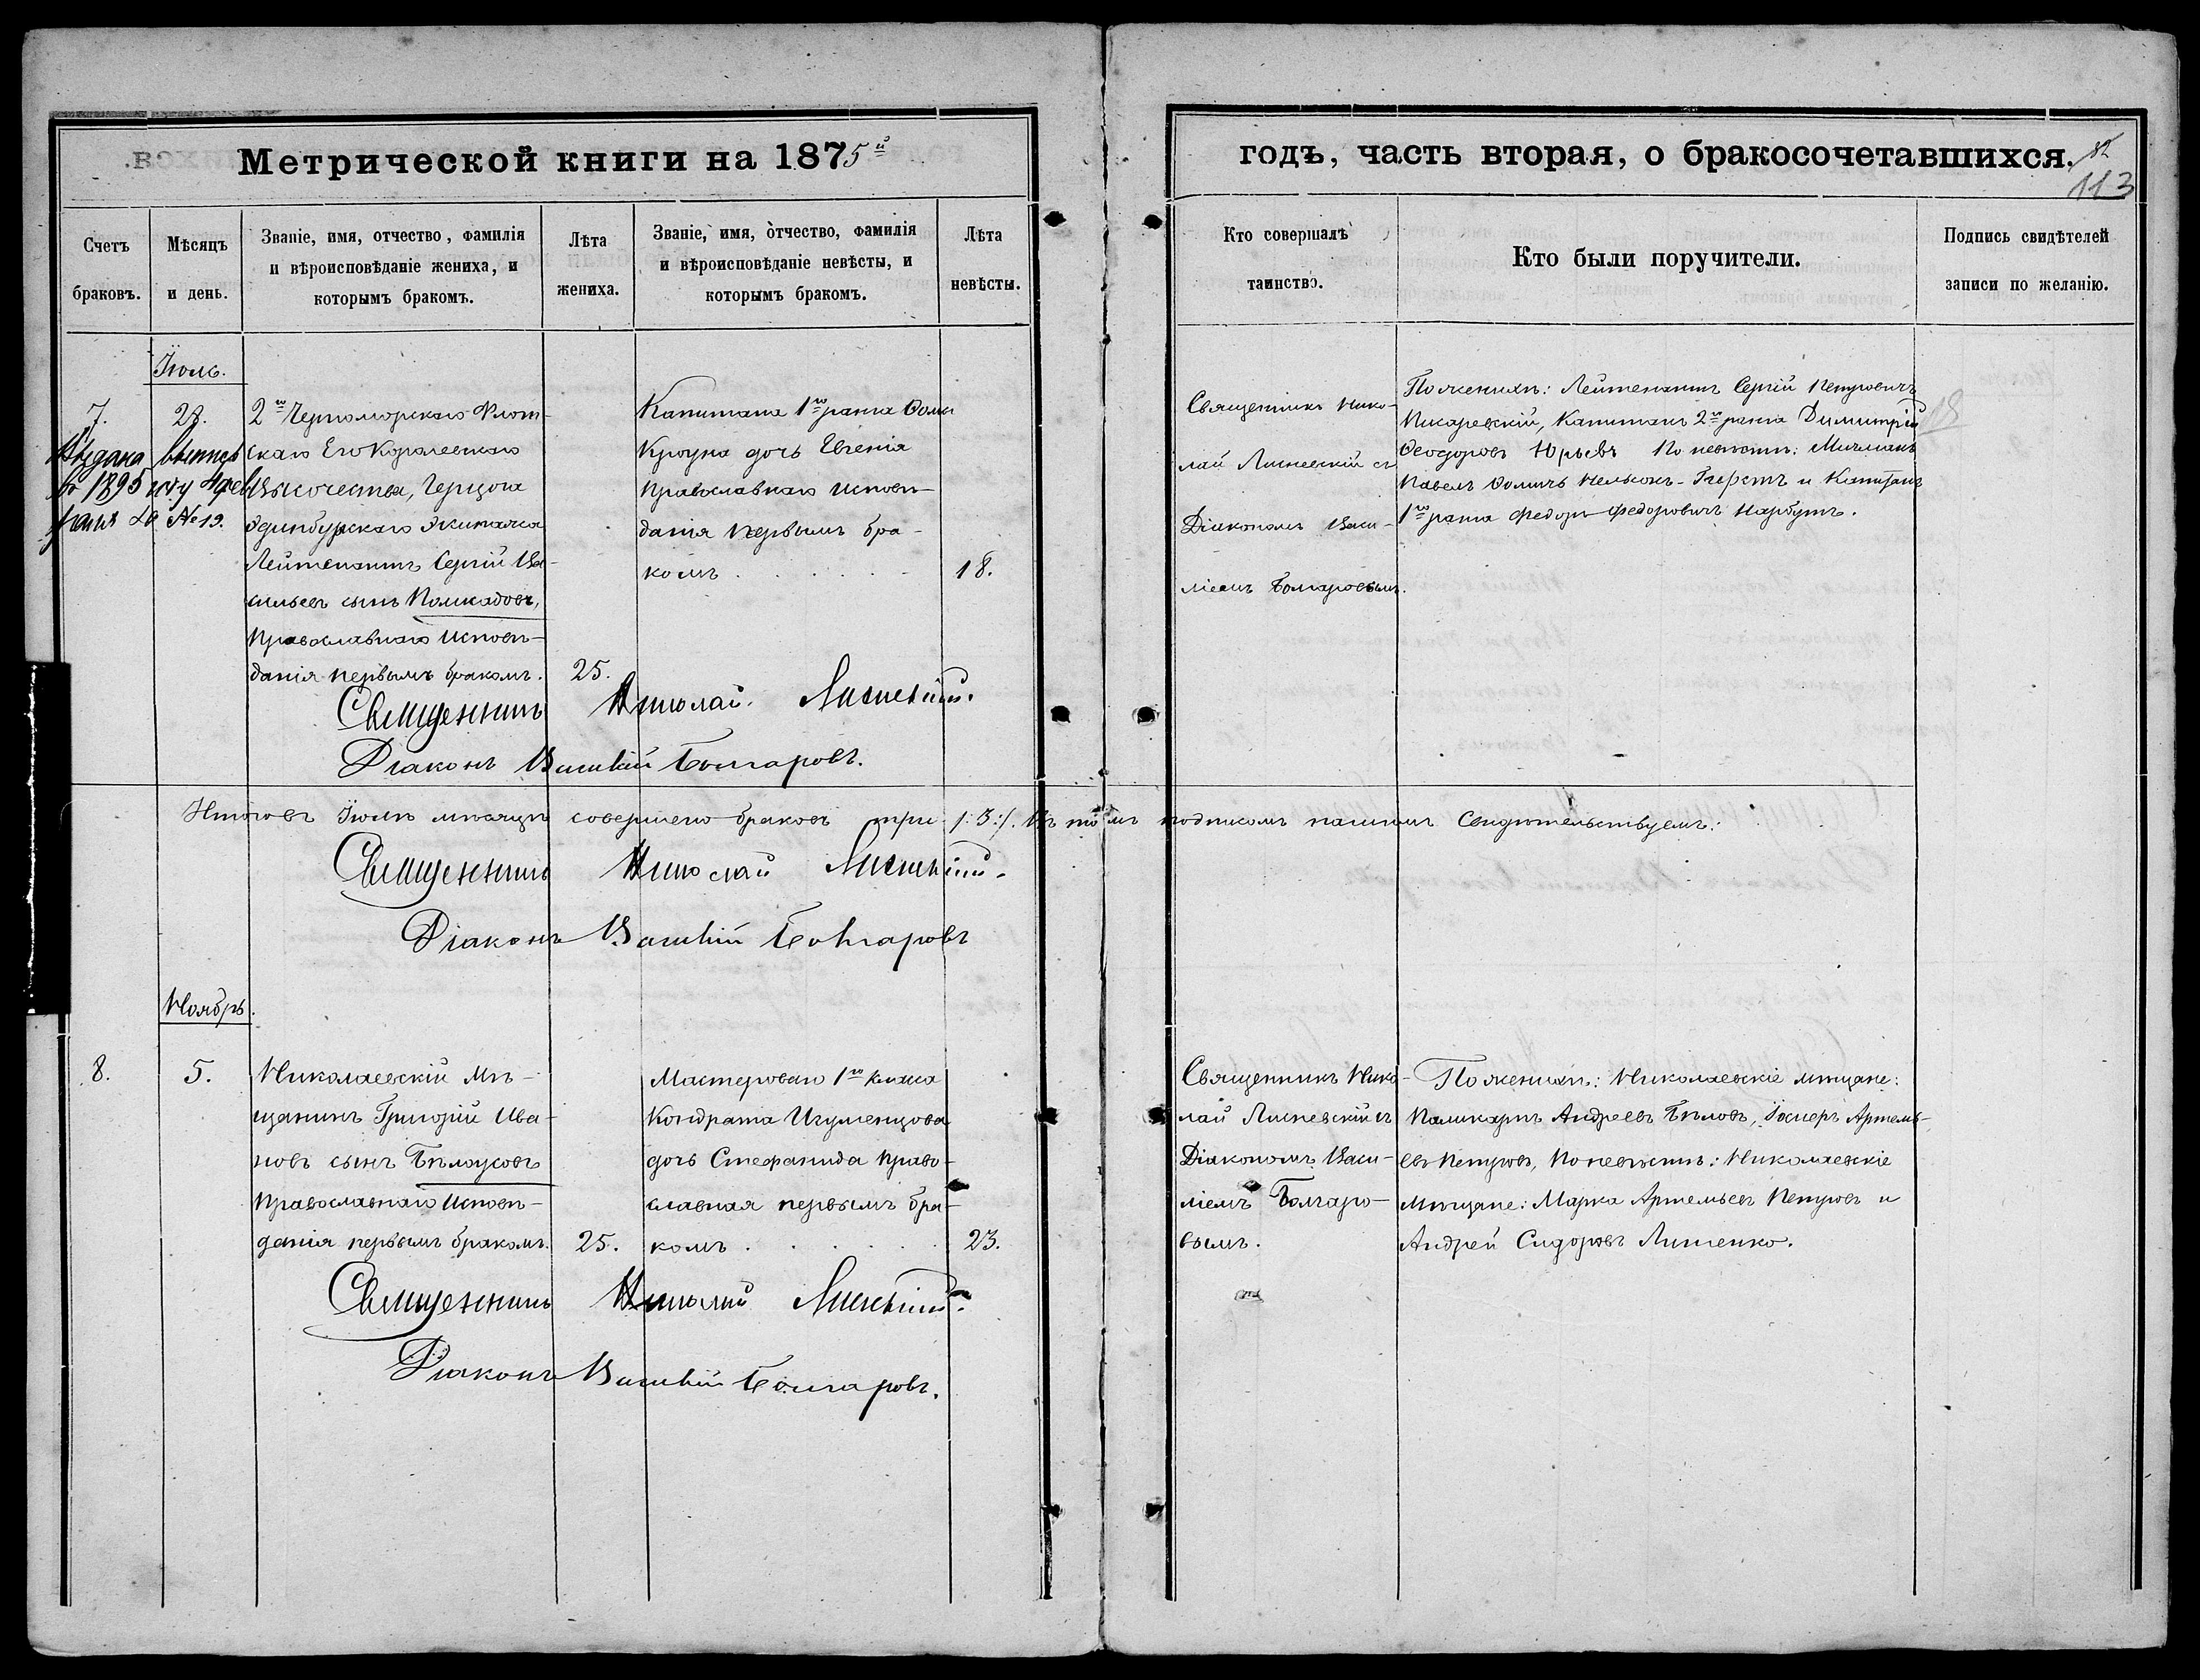 Метрической книги на 1875й
годъ, часть вторая, о бракосочетавшихся.
113
Счетъ браковъ.
Мѣсяцъ и день.
Званіе, имя, отчество, фамилія
и вѣроисповѣданіе жениха, и
которымъ бракомъ.
Лѣта жениха.
Званіе, имя, отчество, фамилія
и вѣроисповѣданіе невѣсты, и
которымъ бракомъ.
Лѣта невѣсты.
Кто совершалъ
таинство.
Кто были поручители.
Подпись свидѣтелей
записи по желанію.
Іюль.
7.
28.
Выдана выпись
1895 году
№ 19.
2го Черноморскаго Флот-
скаго Его Королевскаго
Высочества, Герцога
Эдинбургскаго экипажа
Лейтенантъ Сергій Ва-
сильевъ сынъ Полкадовъ,
Православнаго Исповѣ-
данія первымъ бракомъ.
25.
Капитана 1го ранга Ѳомы
Кроуна дочь Евгенія
Православнаго исповѣ-
данія первымъ бра-
комъ
18.
Священникъ Нико-
лай Лисневскій съ
Діакономъ Васи-
ліемъ Болгаровымъ.
По женихѣ: Лейтенантъ Сергій Петровичъ
Писаревскій, Капитанъ 2го ранга Димитрій
Ѳеодоровъ Юрьевъ По невѣстѣ: Мичманъ
Павелъ Ѳомичъ Нельсонъ-Гирстъ и Капитанъ
1го ранга Федоръ Федоровичъ Нарбутъ.
Священникъ Николай Лисневскій.
Діаконъ Василій Болгаровъ.
Итого въ Іюлѣ мѣсяцѣ совершено браковъ три /:3:/. Въ томъ подписомъ нашимъ Свидѣтельствуемъ:
Священникъ Николай Лисневскій.
Діаконъ Василій Болгаровъ
Ноябрь.
8.
5.
Николаевскій Мѣ-
щанинъ Григорій Ива-
новъ сынъ Бѣлоусовъ
Православнаго Исповѣ-
данія первымъ бракомъ.
25.
Мастероваго 1го класса
Кондрата Игуменцова
дочь Стефанида Право-
славная первымъ бра-
комъ
23.
Священникъ Нико-
лай Лисневскій съ
Діакономъ Васи-
ліемъ Болгаро-
вымъ.
По женихѣ: Николаевскіе мѣщане:
Поликарпъ Андреевъ Бѣловъ, Іосифъ Артемь-
евъ Петровъ, По невѣстѣ: Николаевскіе
мѣщане: Марка Артемьевъ Петровъ и
Андрей Сидоровъ Лишенко.
Священникъ Николай Лисневскій.
Діаконъ Василій Болгаровъ.